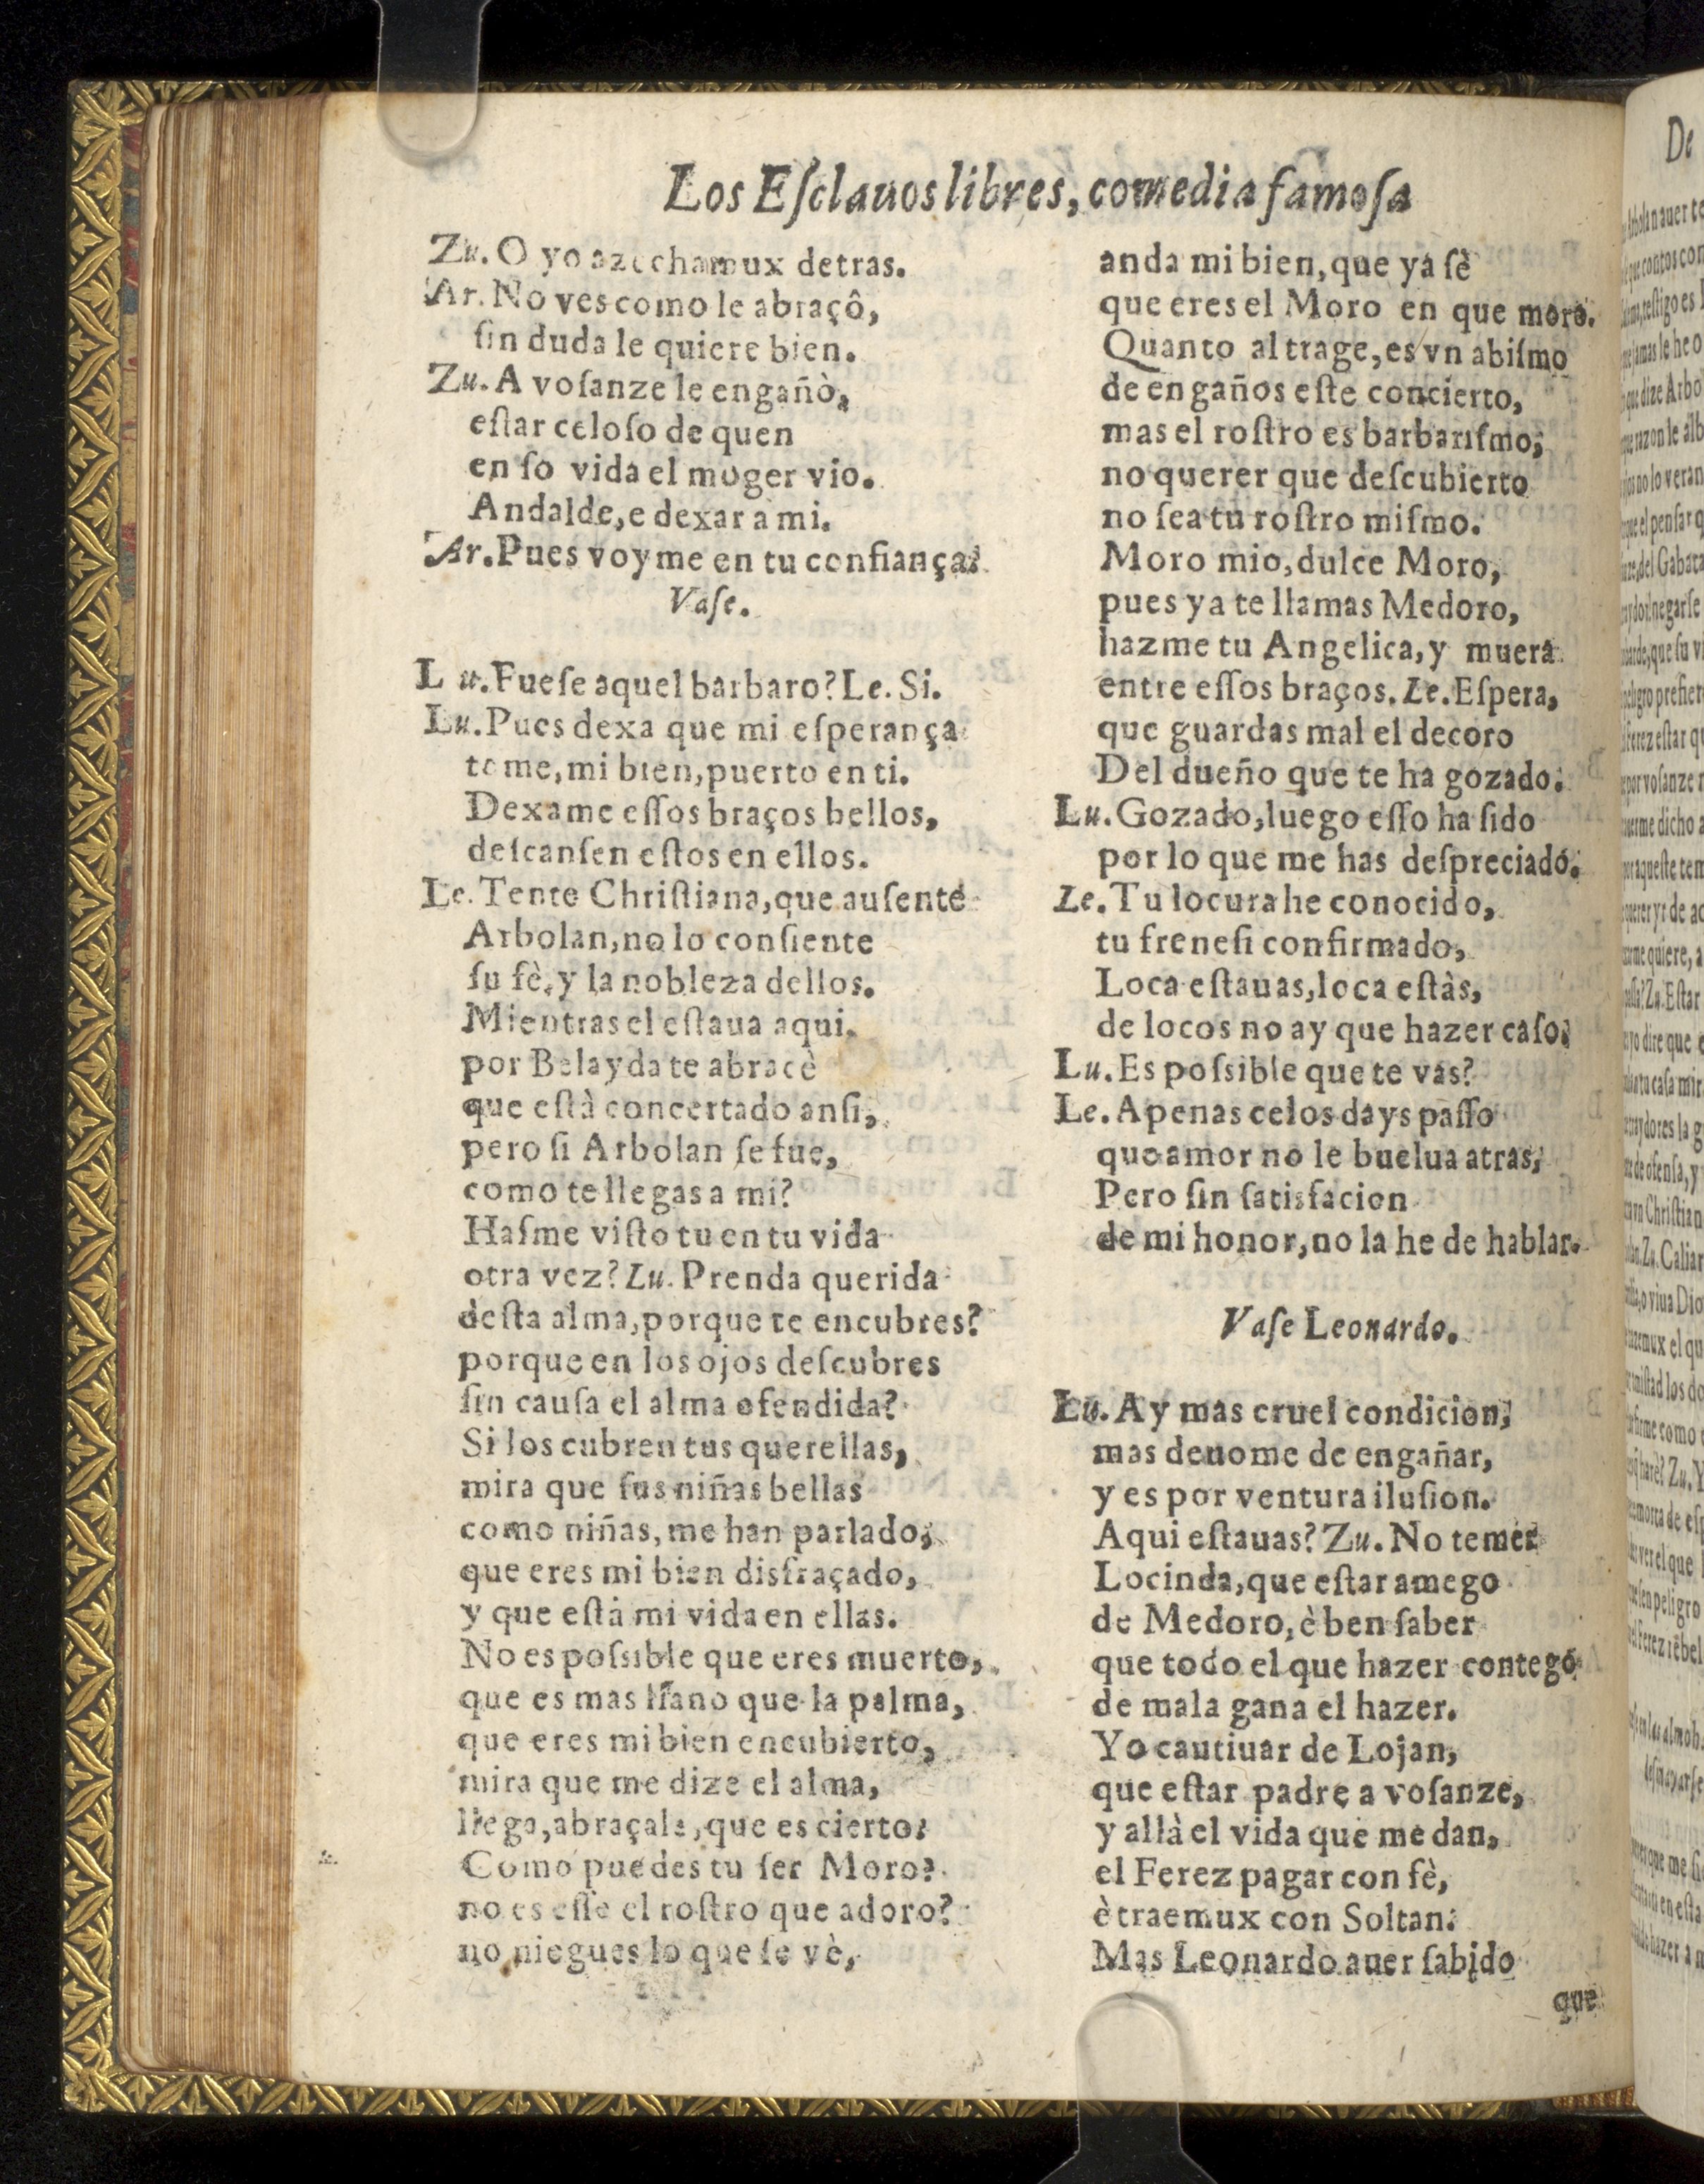 Los Eſclauos libres, comedia famoſa
Zu. O yo azechamux detras.
Ar. No ves como le abraçô,
ſin duda le quiere bien.
Zu. A voſanze le engañò,
eſtar celoſo de quen
en ſo vida el moger vio.
Andalde, e dexar a mi.
Ar. Pues voyme en tu confiança.
Vaſe.
Lu. Fueſe aquel barbaro? Le. Si.
Lu. Pues dexa que mi eſperança
tome, mi bien, puerto en ti.
Dexame eſſos braços bellos,
deſcanſen eſtos en ellos.
Le. Tente Chriſtiana, que auſente
Arbolan, no lo conſiente
ſu fè, y la nobleza dellos.
Mientras el eſtaua aqui,
por Belayda te abracè
que eſtà concertado anſi,
pero ſi Arbolan ſe fue,
como te llegas a mi?
Haſme viſto tu en tu vida
otra vez? Lu. Prenda querida
deſta alma, porque te encubres?
porque en los ojos deſcubres
ſin cauſa el alma ofendida?
Si los cubren tus querellas,
mira que ſus niñas bellas
como niñas, me han parlado,
que eres mi bien disfraçado,
y que eſtà mi vida en ellas.
No es poſsible que eres muerto,
que es mas llano que la palma,
que eres mi bien encubierto,
mira que me dize el alma,
llega, abraçale, que es cierto:
Como puedes tu ſer Moro?
no es eſſe el roſtro que adoro?
no niegues lo que ſe vè,
anda mi bien, que ya ſè
que eres el Moro en que moro.
Quanto al trage, es vn abiſmo
de engaños eſte concierto,
mas el roſtro es barbariſmo,
no querer que deſcubierto
no ſea tu roſtro miſmo.
Moro mio, dulce Moro,
pues ya te llamas Medoro,
hazme tu Angelica, y muera
entre eſſos braços. Le. Eſpera,
que guardas mal el decoro
Del dueño que te ha gozado.
Lu. Gozado, luego eſſo ha ſido
por lo que me has deſpreciado.
Le. Tu locura he conocido,
tu freneſi confirmado,
Loca eſtauas, loca eſtàs,
de locos no ay que hazer caſo.
Lu. Es poſsible que te vas?
Le. Apenas celos days paſſo
que amor no le buelua atras,
Pero ſin ſatisfacion
de mi honor, no la he de hablar.
Vaſe Leonardo.
Lu. Ay mas cruel condicion,
mas deuome de engañar,
y es por ventura iluſion.
Aqui eſtauas? Zu. No temer
Locinda, que eſtar amego
de Medoro, è ben ſaber
que todo el que hazer contego
de mala gana el hazer.
Yo cautiuar de Lojan,
que eſtar padre a voſanze,
y allà el vida que me dan,
el Ferez pagar con fè,
è traemux con Soltan.
Mas Leonardo auer ſabido
que